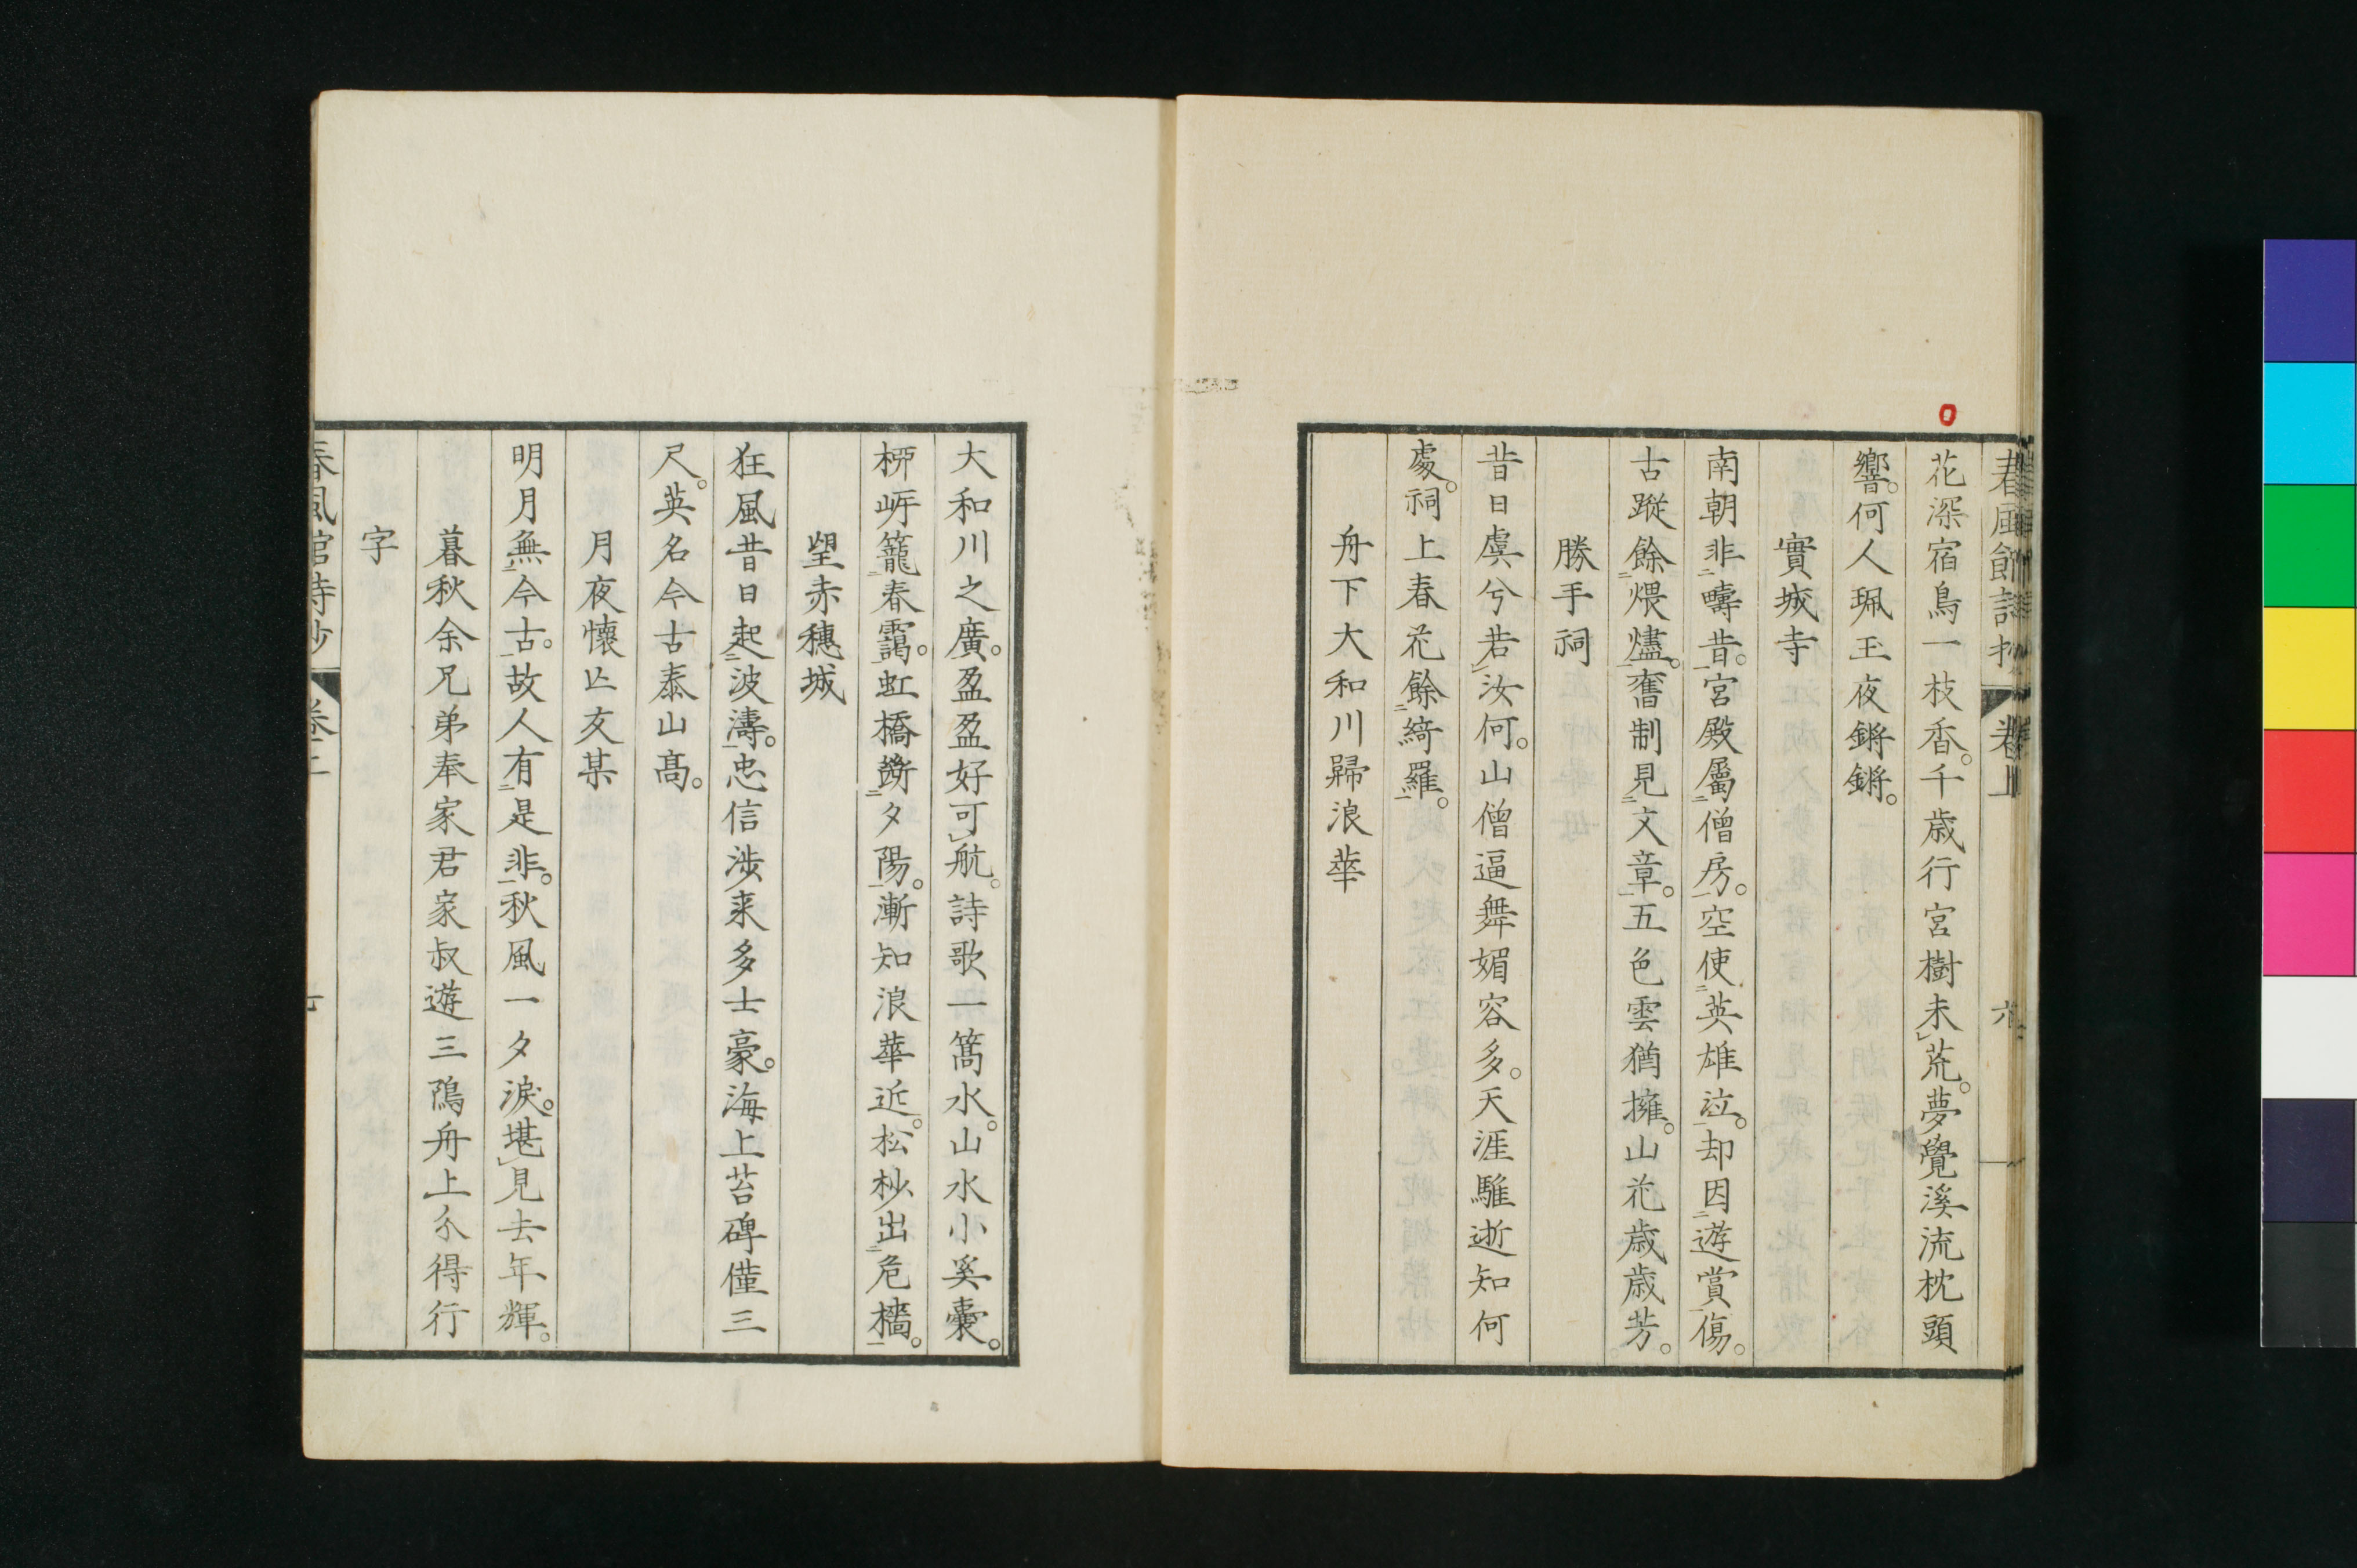 春風館詩抄 卷上 六
花深宿鳥一枝香。千歳行宮樹未荒。夢覺溪流枕頭
響。何人珮玉夜鏘鏘。
實城寺
南朝非疇昔。宮殿屬僧房。空使英雄泣。却因遊賞傷。
古蹤餘煨燼。舊制見文章。五色雲猶擁。山花歳歳芳。
勝手祠
昔日虞兮若汝何。山僧逼舞媚容多。天涯騅逝知何
處。祠上春花餘綺羅。
舟下大和川歸浪華
大和川之廣。盈盈好可航。詩歌一篙水。山水小奚囊。
柳㟁籠春靄。虹橋斷夕陽。漸知浪華近。松杪出危檣。
望赤穗城
狂風昔日起波濤。忠信涉来多士豪。海上苔碑僅三
尺。英名今古泰山髙。
月夜懷亡友某
明月無今古。故人有是非。秋風一夕淚。堪見去年輝。
暮秋余兄弟奉家君家叔遊三隝舟上分得行
字
春風館詩抄 卷上 七